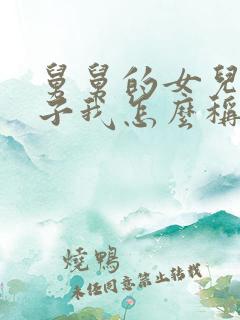 舅舅的女兒
子我怎麼稱
燒鴨
未经同意禁止转载